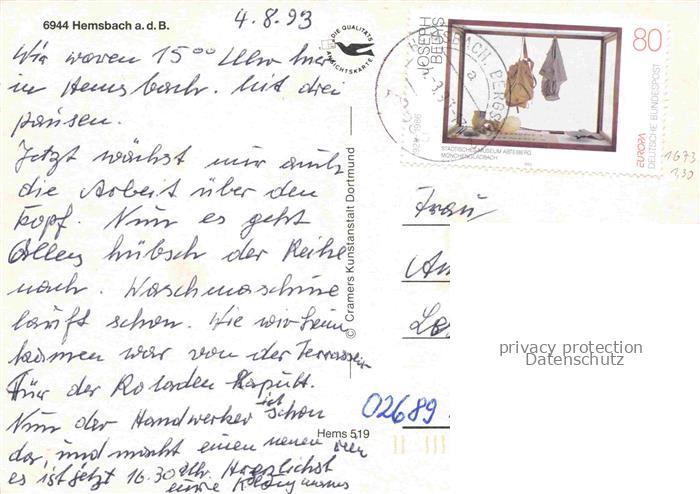 6944 Hemsbach a. d. B.
4.8.93
DIE QUALITÄTS
ANSICHTSKARTE
Wir waren 15⁰⁰ Uhr hier
in Hemsbach. Mit drei
pausen.
Jetzt wächst mir auch
die Arbeit über den
Kopf. Nun es geht
Alles hübsch der Reihe
nach. Waschmaschine
läuft schon. Wie wir heim
kamen war von der Terrassen
Tür der Roladen Kaputt.
Nun der Handwerker ist schon
da, und macht einen neuen
es ist jetzt 16.30 Uhr. Herzlichst
eure
© Cramers Kunstanstalt Dortmund
Hems 519
JOSEPH
BEUYS
80
STÄDTISCHES MUSEUM ABTEIBERG
MÖNCHENGLADBACH
EUROPA
DEUTSCHE BUNDESPOST
1673
1,30
Frau
02689
privacy protection
Datenschutz